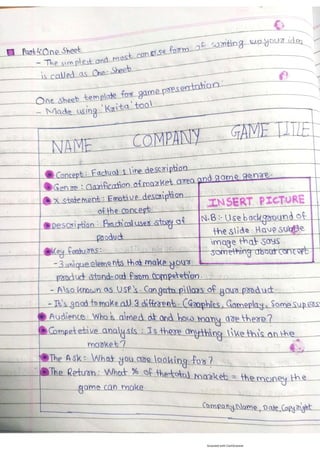 Part 4: One Sheet
- The simplest and most concise form of writing up your idea
is called as One-Sheet
One sheet template for game presentation.
- Made using 'Krita' tool
NAME COMPANY GAME TITLE
Concept: Factual 1 line description
Genre: Clarification of market area and game genre.
X statement: Emotive description
of the concept
Description: Practical user story of
product
INSERT PICTURE
N.B:- Use background of
the slide. Have subtle
image that says
something about concept
Key features:-
- 3 unique elements that make your
product stand-out from competetion.
- Also known as USP's. Can gota pillars of your product
- It's good to make all 3 different. (Graphics, Gameplay, Some super
Audience: Who is aimed at and how many are there?
Competetive analysis: Is there anything like this on the
market?
The Ask: What you are looking for?
The Return: What % of the total market = the money the
game can make
Company Name, Date, Copyright
Scanned with CamScanner